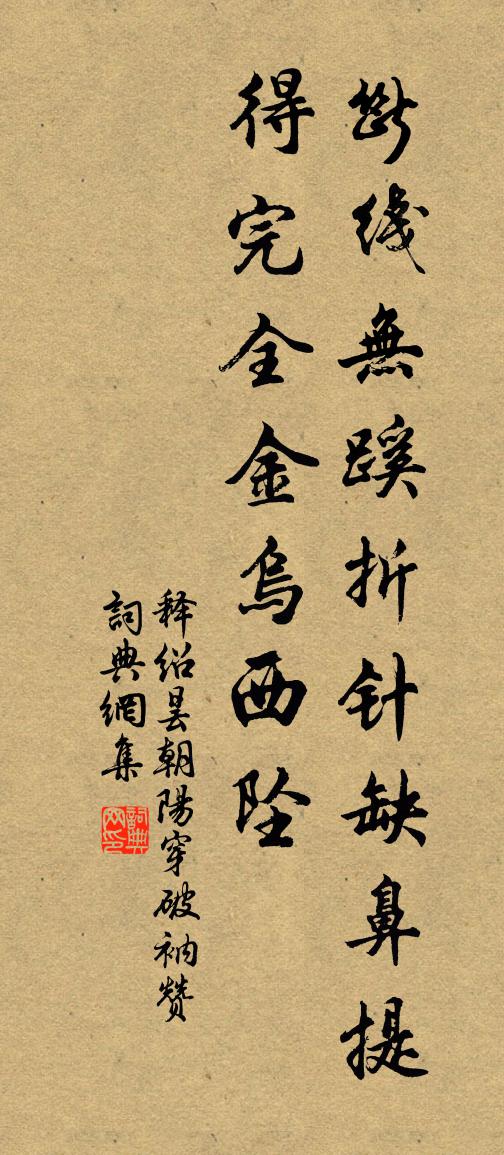 断线無蹊折针缺鼻提
得完全金烏西坠
释绍昙朝陽穿破衲赞
詞典網集
詞典网印